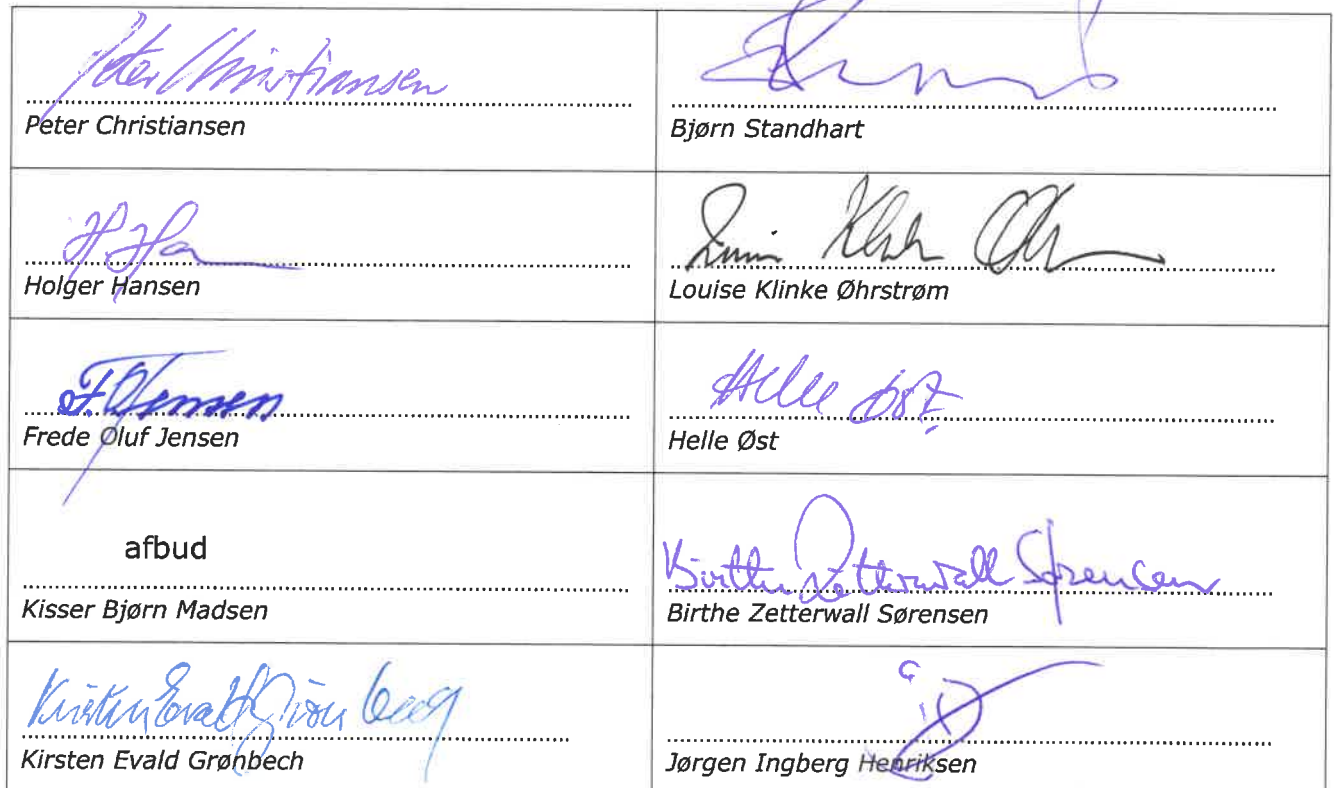 Peter Christiansen
Peter Christiansen
Bjørn Standhart
H. Ha
Holger Hansen
Louise Klinke Øhrstrøm
F.O Jensen
Frede Oluf Jensen
Helle Øst
Helle Øst
afbud
Kisser Bjørn Madsen
Birthe Zetterwall Sørensen
Birthe Zetterwall Sørensen
Kirsten Evald Grønbech
Kirsten Evald Grønbech
Jørgen Ingberg Henriksen